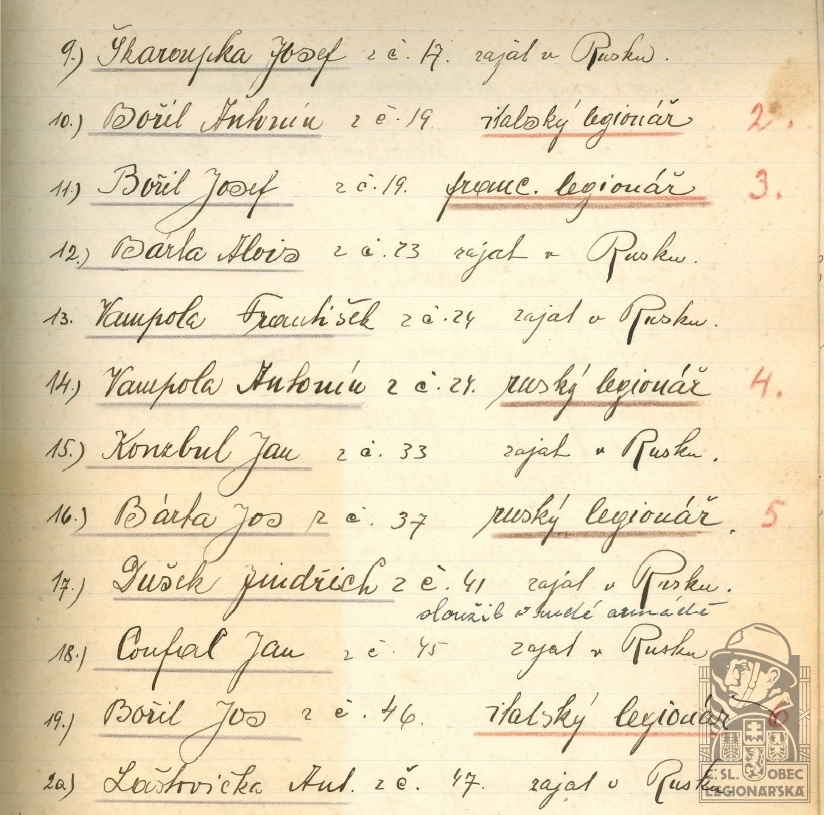 9.) Škaroupka Josef z č. 17. zajat v Rusku.
10.) Bořil Antonín z č. 19 italský legionář 2.
11.) Bořil Josef z č. 19. franc. legionář 3.
12.) Bárta Alois z č. 23 zajat v Rusku.
13. Vampola František z č. 24 zajat v Rusku.
14.) Vampola Antonín z č. 24. ruský legionář 4.
15.) Konzbul Jan z č. 33 zajat v Rusku.
16.) Bárta Jos z č. 37 ruský legionář. 5
17.) Dušek Jindřich z č. 41 zajat v Rusku.
sloužil v rudé armádě
18.) Coufal Jan z č. 45 zajat v Rusku
19.) Bořil Jos z č. 46. italský legionář 6
20.) Laštovička Ant. z č. 47. zajat v Rusku
Č. SL. OBEC
LEGIONÁŘSKÁ